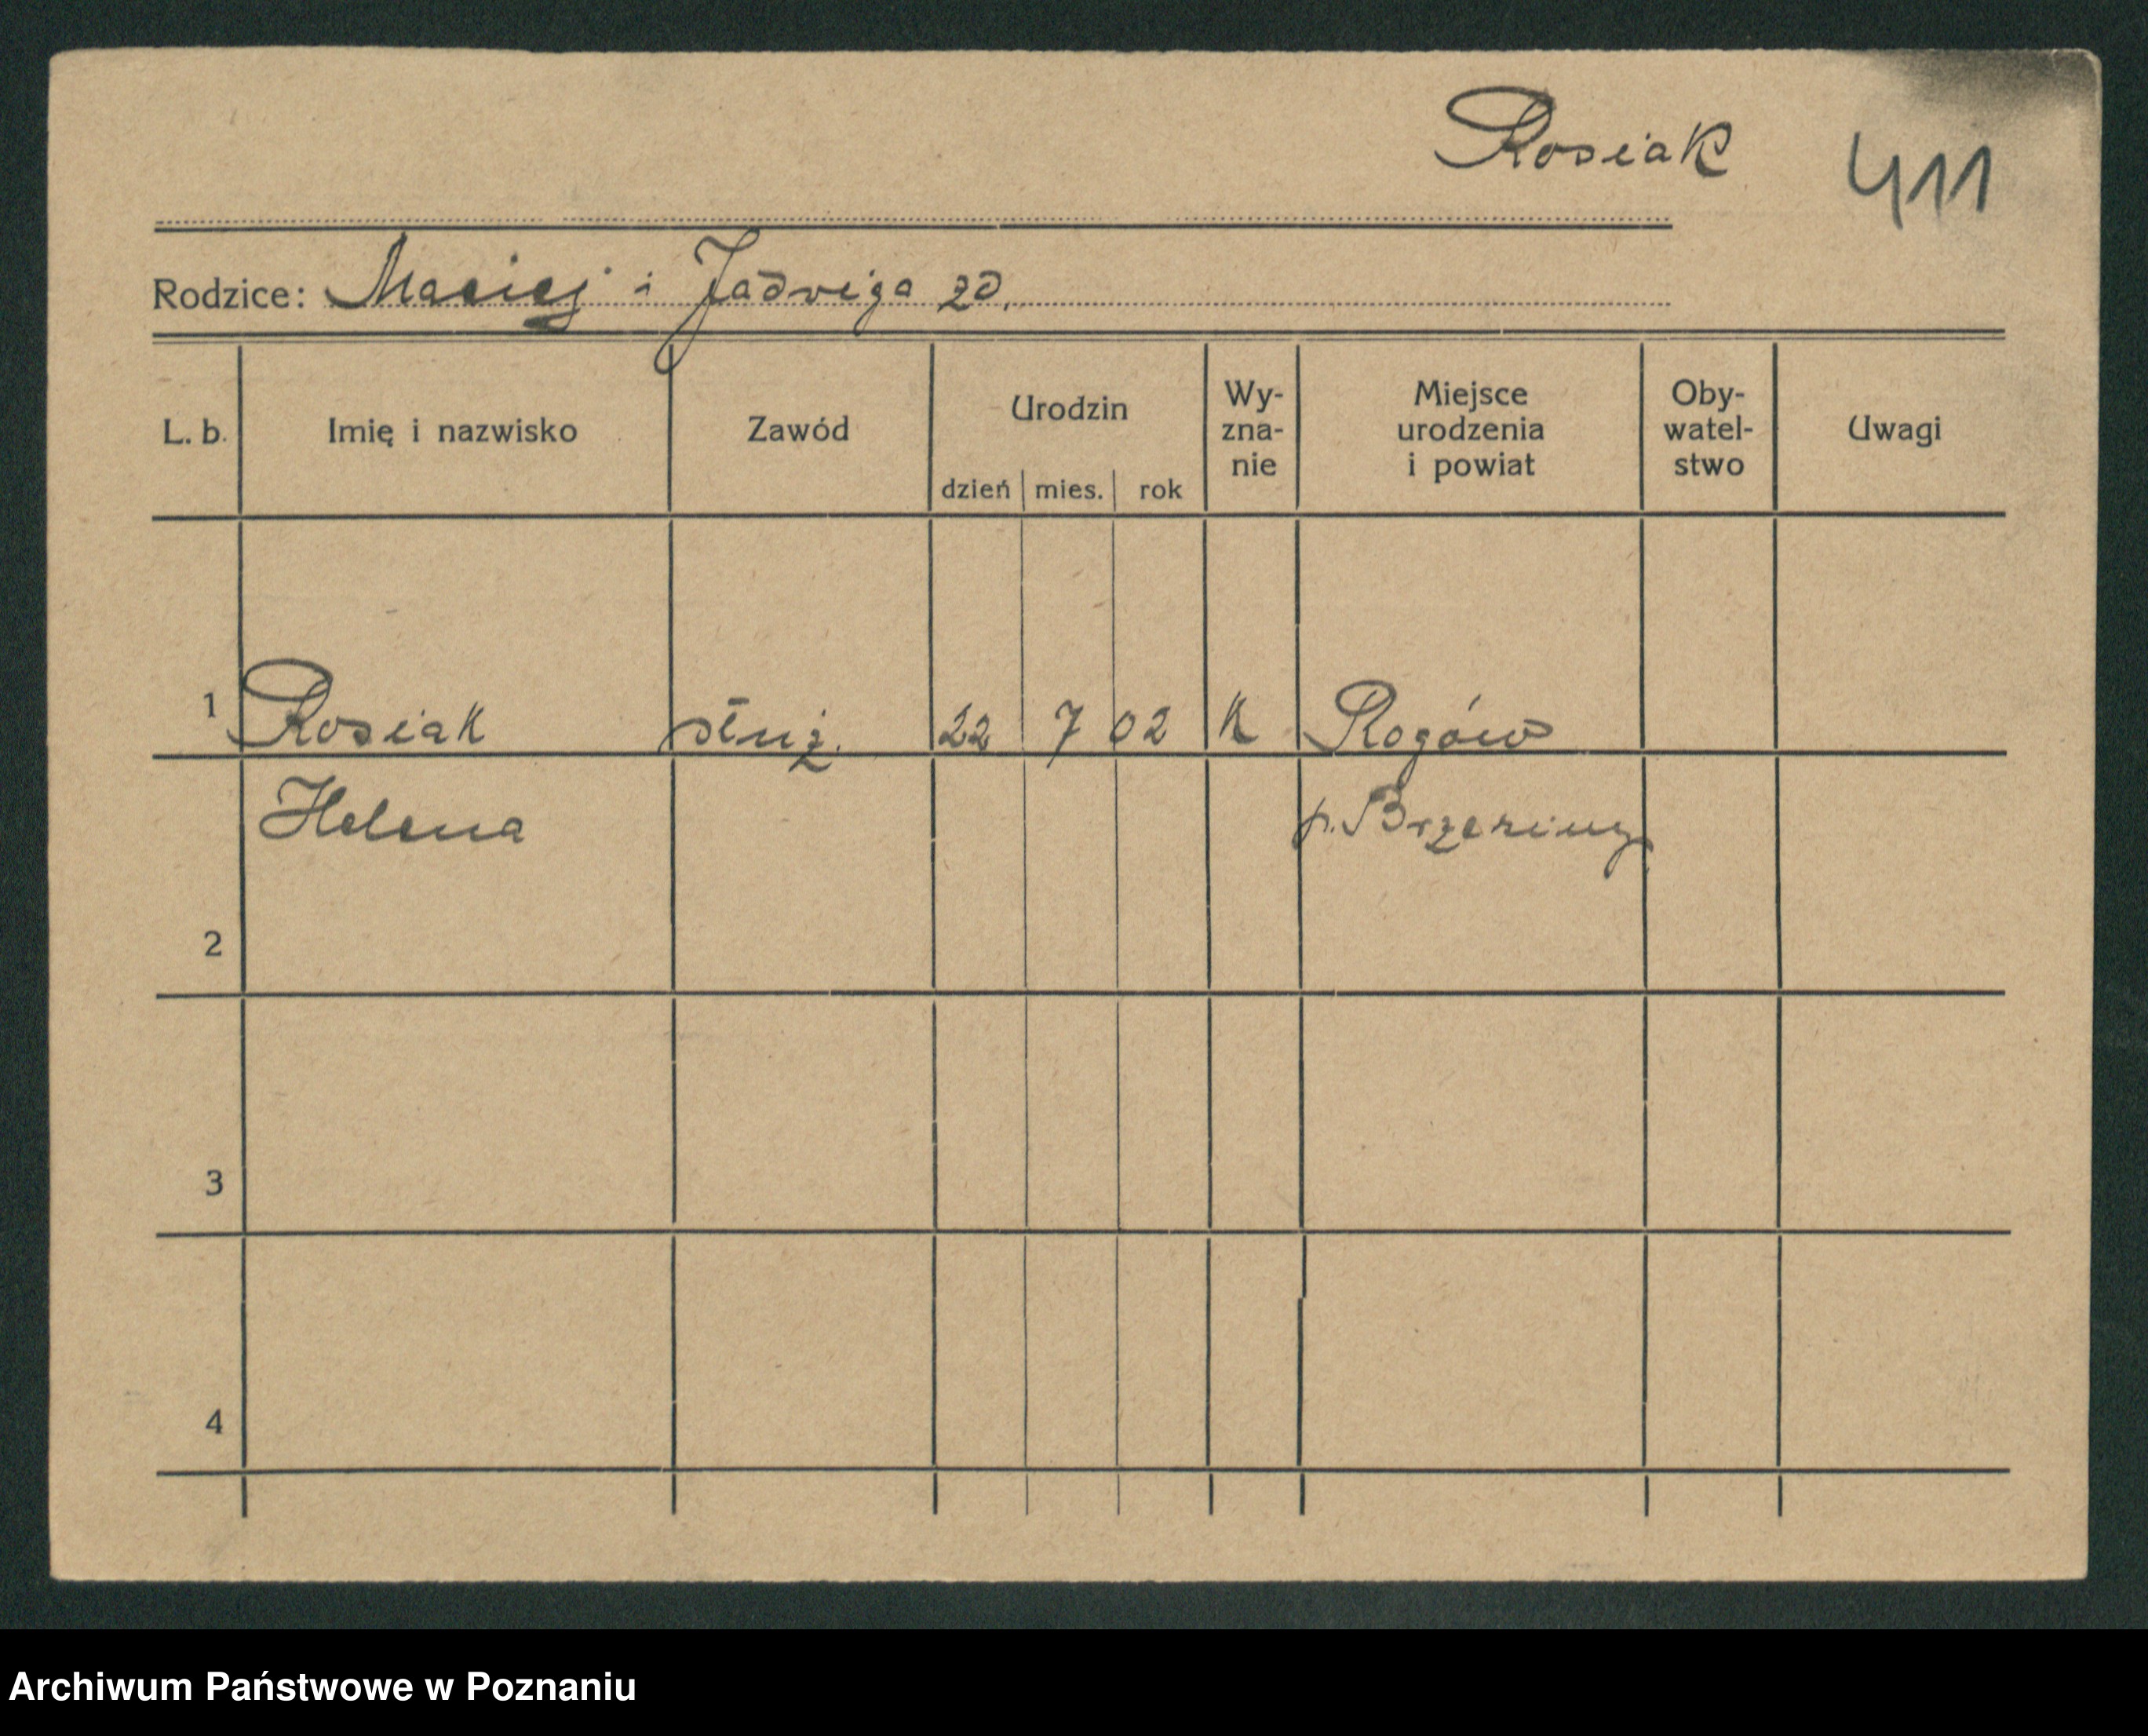 Rosiak 411
Rodzice: Maciej i Jadwiga zd.
L. b. Imię i nazwisko Zawód Urodzin dzień mies. rok Wy-zna-nie Miejsce urodzenia i powiat Oby-watel-stwo Uwagi
1 Rosiak służ. 22 7 02 K Rogów
Helena p. Brzeziny
2
3
4
Archiwum Państwowe w Poznaniu